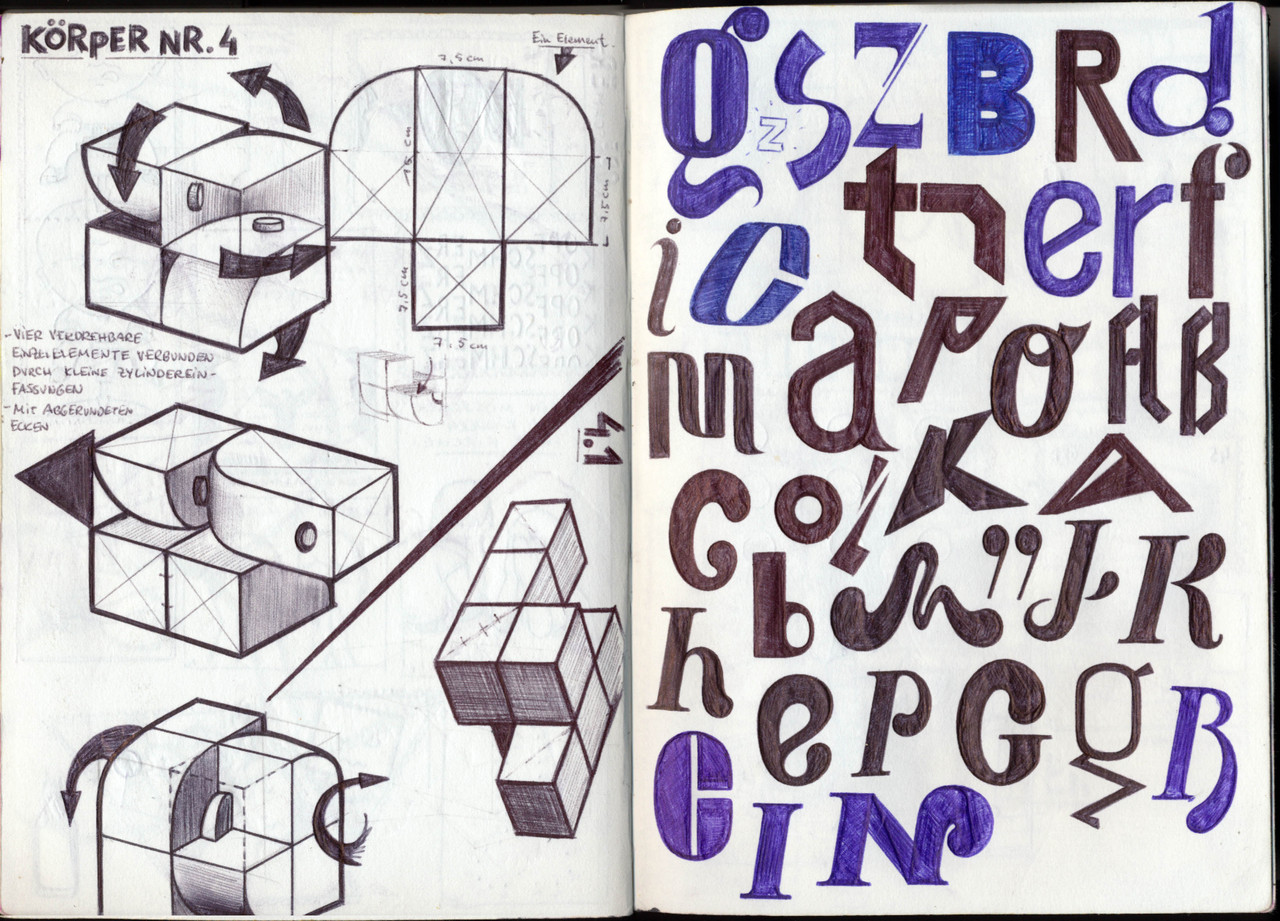 KÖRPER NR. 4
Ein Element
7,5cm
15 cm
7,5cm
7,5cm
7,5cm
- VIER VERDREHBARE
EINZELELEMENTE VERBUNDEN
DURCH KLEINE ZYLINDEREIN-
FASSUNGEN
- MIT ABGERUNDETEN
ECKEN
4.1
g z S Z B R d
t n e r f
i C
m a P O A B
C o K A
b n " J R
h e P G g B
C I N